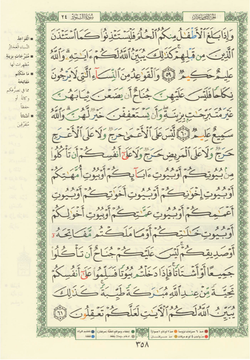 الجزء الثامن عشر سورة النور ٢٤
وَإِذَا بَلَغَ ٱلْأَطْفَٰلُ مِنكُمُ ٱلْحُلُمَ فَلْيَسْتَـْٔذِنُوا۟ كَمَا ٱسْتَـْٔذَنَ
ٱلَّذِينَ مِن قَبْلِهِمْ كَذَٰلِكَ يُبَيِّنُ ٱللَّهُ لَكُمْ ءَايَٰتِهِۦ وَٱللَّهُ
عَلِيمٌ حَكِيمٌ ٥٩ وَٱلْقَوَٰعِدُ مِنَ ٱلنِّسَآءِ ٱلَّٰتِى لَا يَرْجُونَ
نِكَاحًا فَلَيْسَ عَلَيْهِنَّ جُنَاحٌ أَن يَضَعْنَ ثِيَابَهُنَّ
غَيْرَ مُتَبَرِّجَٰتٍۭ بِزِينَةٍ وَأَن يَسْتَعْفِفْنَ خَيْرٌ لَّهُنَّ وَٱللَّهُ
سَمِيعٌ عَلِيمٌ ٦٠ لَّيْسَ عَلَى ٱلْأَعْمَىٰ حَرَجٌ وَلَا عَلَى ٱلْأَعْرَجِ
حَرَجٌ وَلَا عَلَى ٱلْمَرِيضِ حَرَجٌ وَلَا عَلَىٰٓ أَنفُسِكُمْ أَن تَأْكُلُوا۟
مِنۢ بُيُوتِكُمْ أَوْ بُيُوتِ ءَابَآئِكُمْ أَوْ بُيُوتِ أُمَّهَٰتِكُمْ
أَوْ بُيُوتِ إِخْوَٰنِكُمْ أَوْ بُيُوتِ أَخَوَٰتِكُمْ أَوْ بُيُوتِ
أَعْمَٰمِكُمْ أَوْ بُيُوتِ عَمَّٰتِكُمْ أَوْ بُيُوتِ أَخْوَٰلِكُمْ
أَوْ بُيُوتِ خَٰلَٰتِكُمْ أَوْ مَا مَلَكْتُم مَّفَاتِحَهُۥٓ أَوْ
صَدِيقِكُمْ لَيْسَ عَلَيْكُمْ جُنَاحٌ أَن تَأْكُلُوا۟
جَمِيعًا أَوْ أَشْتَاتًا فَإِذَا دَخَلْتُم بُيُوتًا فَسَلِّمُوا۟ عَلَىٰٓ أَنفُسِكُمْ
تَحِيَّةً مِّنْ عِندِ ٱللَّهِ مُبَٰرَكَةً طَيِّبَةً كَذَٰلِكَ
يُبَيِّنُ ٱللَّهُ لَكُمُ ٱلْءَايَٰتِ لَعَلَّكُمْ تَعْقِلُونَ ٦١
٣٥٨